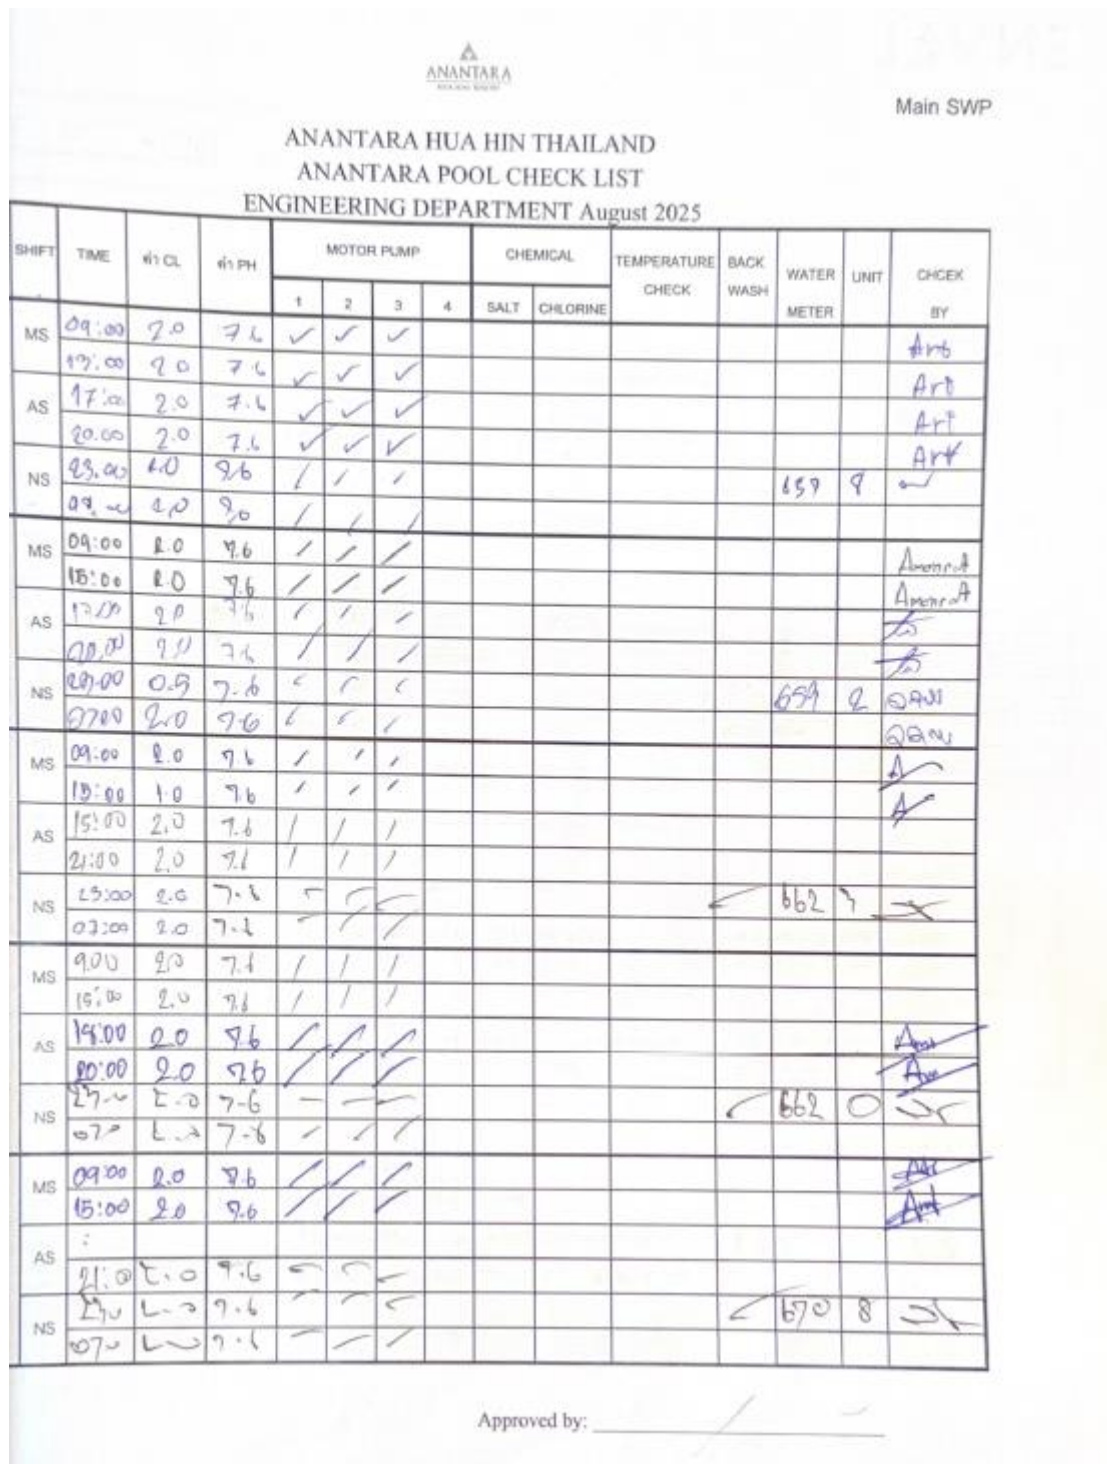 ANANTARA
Main SWP
ANANTARA HUA HIN THAILAND
ANANTARA POOL CHECK LIST
ENGINEERING DEPARTMENT August 2025
SHIFT TIME ค่า CL ค่า PH MOTOR PUMP CHEMICAL TEMPERATURE CHECK BACK WASH WATER METER UNIT CHCEK BY
1 2 3 4 SALT CHLORINE
MS 09:00 2.0 7.6 ✓ ✓ ✓ Art
13:00 2.0 7.6 ✓ ✓ ✓ Art
AS 17:00 2.0 7.6 ✓ ✓ ✓ Art
20.00 2.0 7.6 ✓ ✓ ✓ Art
NS 23.00 2.0 7.6 / / /
2.0 / / /
MS 09:00 2.0 7.6 / / / Amonrat
15:00 2.0 7.6 / / / Amonrat
AS 17.00 2.0 7.6 / / /
20.00 2.0 7.6 / / /
NS 23.00 0.5 7.6 / / / 659 2
0700 2.0 7.6 / / /
MS 09:00 2.0 7.6 / / / A
15:00 1.0 7.6 / / / A
AS 15:00 2.0 7.6 / / /
21:00 2.0 7.6 / / /
NS 23:00 2.0 7.6 / / / ✓ 662 3
07:00 2.0 7.6 / / /
MS 9.00 2.0 7.6 / / /
15:00 2.0 7.6 / / /
AS 18:00 2.0 7.6 / / /
20:00 2.0 7.6 / / /
NS 2.0 7-6 ✓ 662 0
2.0 / / /
MS 09:00 2.0 7.6 / / /
15:00 2.0 7.6 / / /
AS :
21:00 2.0 7.6
NS 2.0 7.6 ✓ 670 8
7.6
Approved by: